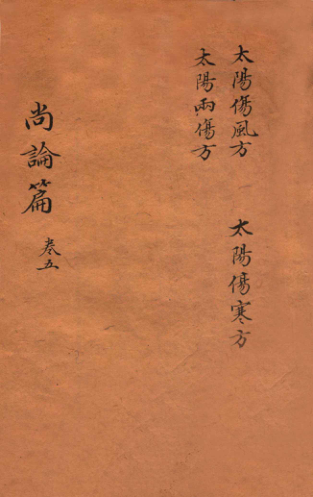 太陽傷風方
太陽傷寒方
太陽兩傷方
尚論篇 卷五